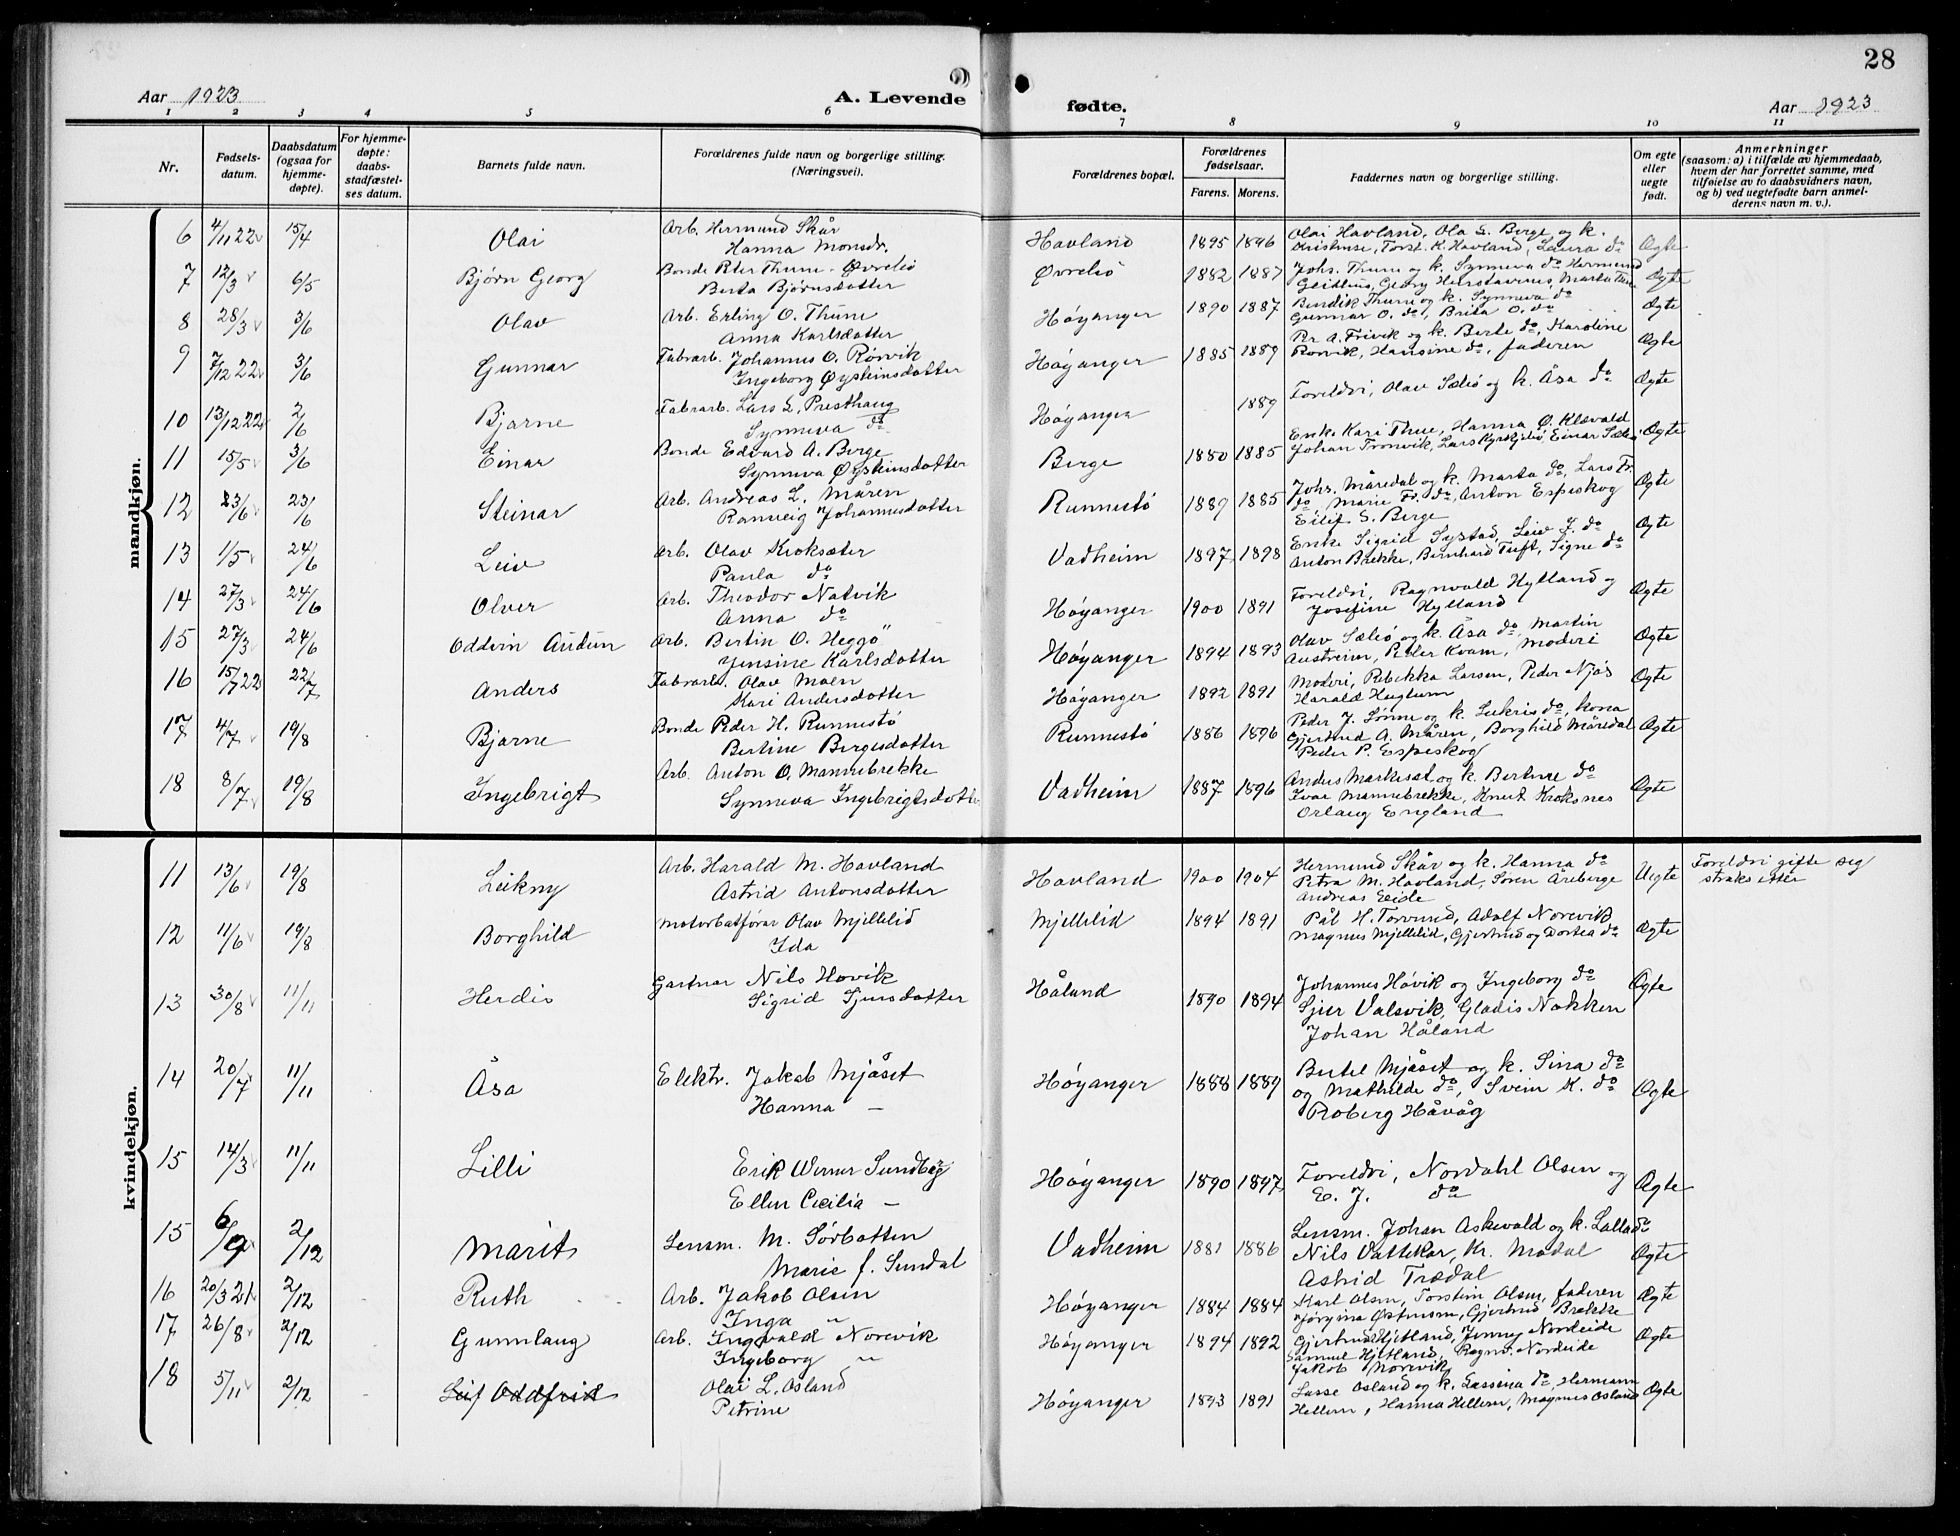 28
Aar 1923
A. Levende
fødte.
Aar 1923
1 2 3 4 5 6 7 8 9 10 11
Nr.
Fødsels-
datum.
Daabsdatum
(ogsaa for
hjemme-
døpte).
For hjemme-
døpte:
daabs-
stadfæstel-
ses datum.
Barnets fulde navn.
Forældrenes fulde navn og borgerlige stilling.
(Næringsvei).
Forældrenes bopæl.
Forældrenes
fødselsaar.
Farens. Morens.
Faddernes navn og borgerlige stilling.
Om egte
eller
uegte
født.
Anmerkninger
(saasom: a) i tilfælde av hjemmedaab,
hvem der har forrettet samme, med
tilføielse av to daabsvidners navn,
og b) ved uegtefødte barn anmel-
derens navn m. v.).
mandkjøn.
6 4/11 22 15/4 Olai Arb. Hermund Skår Havland 1895 1896 Olai Havland, Ola S. Berge og k. Ægte
Hanna Monsdr. Kristense, Torst. K. Havland, Laura do
7 12/3 6/5 Bjørn Georg Bonde Peter Thune - Øvrebö Øvrebö 1882 1887 Johs. Thune og k. Synneva do Hermund Ægte
Berta Bjørnsdotter Georg Marta Thue
8 28/3 3/6 Olav Arb. Erling O. Thune Høyanger 1890 1887 Bendik Thune og k. Synneva do Ægte
Anna Karlsdotter Gunnar O. do, Brita O. do
9 7/12 22 3/6 Gunnar Fabrarb. Johannes O. Rørvik Høyanger 1885 1889 Pr A. Frivik og k. Berte do, Karoline Ægte
Ingeborg Øysteinsdotter Rørvik, Hansine do, faderen
10 13/12 22 2/6 Bjarne Fabrarb. Lars L. Presthaug Høyanger 1889 Foreldri, Olav Sælsø og k. Åsa do Ægte
Synneva do
11 15/5 3/6 Einar Bonde Edvard A. Berge Berge 1880 1885 Enke Kari Thue, Hanna Ø. Klævold Ægte
Synneva Øysteinsdotter Johan Tronvik, Lars Kyrkjebø, Einar
12 23/6 23/6 Steinar Arb. Andreas L. Måren Runnestø 1889 1885 Johs. Måredal og k. Marta do, Lars Fr. Ægte
Ranveig Johannesdotter do, Marie Fr. do, Anton Espeskog
Eilif S. Berge
13 1/5 24/6 Leiv Arb. Olav Kroksæter Vadheim 1897 1898 Enke Sigrid Systad, Leiv J. do Ægte
Paula do Anton Brekke, Bernhard Tuft, Signe do
14 27/3 24/6 Olver Arb. Theodor Natvik Høyanger 1900 1891 Foreldri, Ragnvald Hylland og Ægte
Anna do Josefine Hylland
15 27/3 24/6 Oddvin Audun Arb. Bertin O. Heggö Høyanger 1894 1893 Olav Sælsø og k. Åsa do, Martin Ægte
Jensine Karlsdotter Austreim, Peder Kvam, Moderi
16 15/7 22 22/7 Anders Fabrarb. Olav Moen Høyanger 1892 1891 Moderi, Rebekka Larsen, Peder Njøs Ægte
Kari Andersdotter Harald Huglum
17 4/7 19/8 Bjarne Bonde Peder H. Runnestø Runnestø 1886 1896 Peder J. Lønne og k. do, kona Ægte
Bertine Bergesdotter Gjertrud A. Måren, Borghild Måredal
Peder P. Espeskog
18 8/7 19/8 Ingebrigt Arb. Anton O. Mannebrekke Vadheim 1887 1896 Anders og k. Bertine do Ægte
Synneva Ingebrigtsdotter Ivar Mannebrekke, Knut Kroksnes
Orlaug England
kvindekjøn.
11 13/6 19/8 Leikny Arb. Harald M. Havland Havland 1900 1904 Hermund Skår og k. Hanna do Uegte Foreldri gifte seg
Astrid Antonsdotter Petra M. Havland, Søren Åreberge straks etter
Andreas Eide
12 11/6 19/8 Borghild Motorbåtförar Olav Mjellelid Mjellelid 1894 1891 Pål H. Torvund, Adolf Norevik Ægte
Ida Magnus Mjellelid, Gjertrud og Dortea do
13 30/8 11/11 Herdis Gartnar Nils Høvik Håland 1890 1894 Johannes Høvik og Ingeborg do Ægte
Sigrid Sjursdotter Sjur Valsvik, Gladis Nokken
Johan Håland
14 20/7 11/11 Åsa Elektr. Jakob Mjåset Høyanger 1888 1889 Bertel Mjåset og k. Sina do Ægte
Hanna - og Mathilde do, Svein K. do
Roberg Håvåg
15 14/3 11/11 Lilli Erik Werner Sundberg Høyanger 1890 1897 Foreldri, Nordahl Olsen og Ægte
Ellen Cecilia - E. J. do
15 6/9 2/12 Marit Lensm. M. Sørbotten Vadheim 1881 1886 Lensm. Johan Askevold og k. Lalla do Ægte
Marie f. Sundal Nils Vattekar, Kr. Modal
Astrid Trædal
16 20/3 21 2/12 Ruth Arb. Jakob Olsen Høyanger 1884 1884 Karl Olsen, Torstein Olsen, faderen Ægte
Inga " Jørgina Østensen, Gjertrud Brekke
17 26/8 2/12 Gunnlaug Arb. Ingvald Norevik Høyanger 1894 1892 Gjertrud Hjetland, Jenny Nordeide Ægte
Ingeborg " Samuel Hjetland, Ragnv. Nordeide
Jakob Norevik
18 5/11 2/12 Leif Oddfrid Olai L. Osland Høyanger 1893 1891 Lasse Osland og k. Lassina do, Hermann Ægte
Petrine Hellem, Hanna Hellem, Magnus Osland